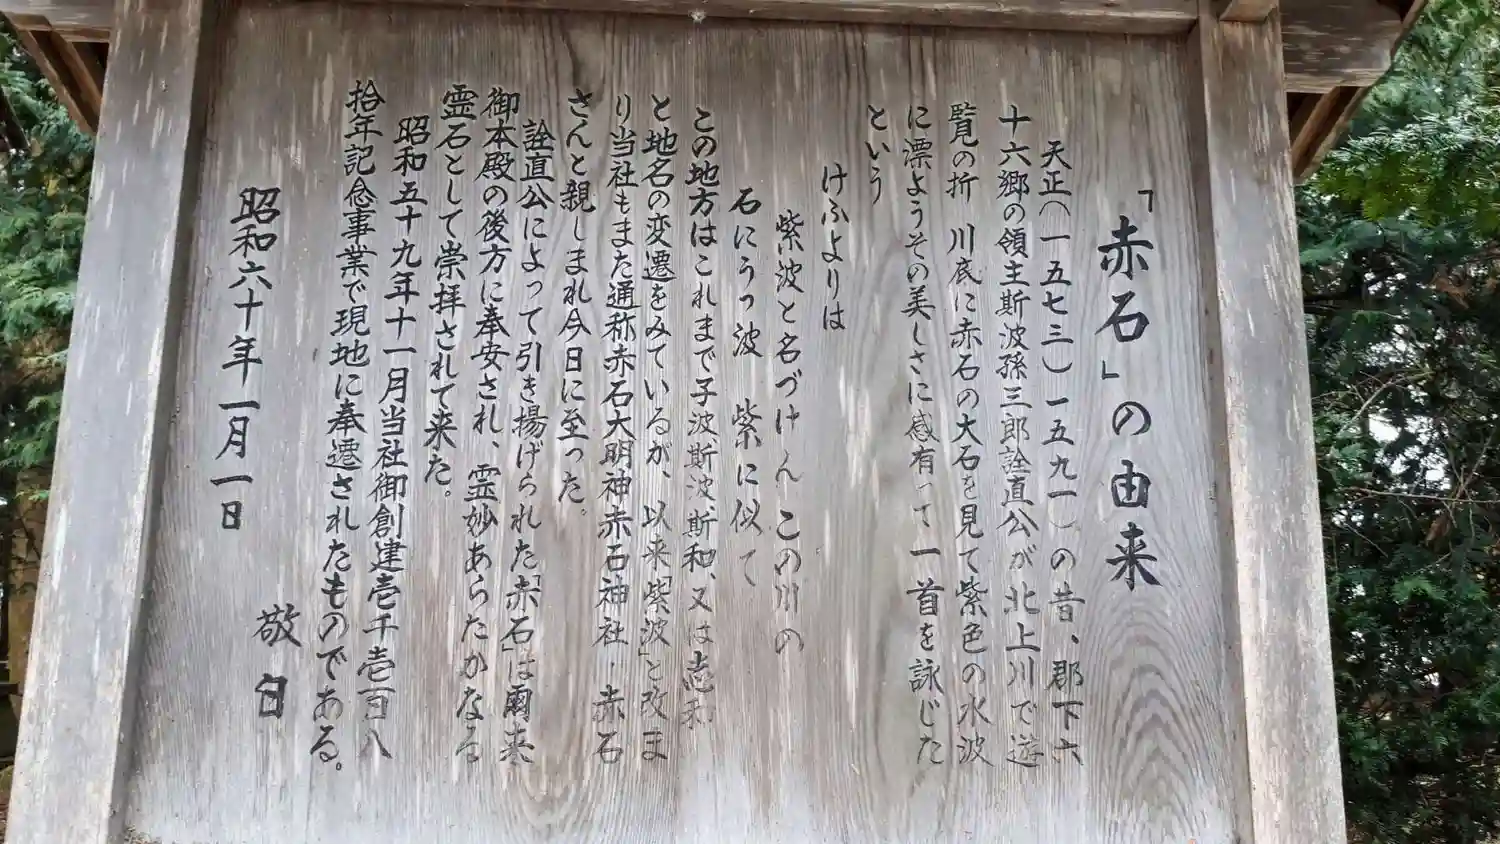 「赤石」の由来
天正(一五七三)一五九一)の昔、郡下六
十六郷の領主斯波孫三郎詮直公が北上川で遊
覧の折 川底に赤石の大石を見て紫色の水波
に漂ようその美しさに感有って一首を詠じた
という
けふよりは
紫波と名づけん この川の
石にうつ波 紫に似て
この地方はこれまで子波斯波、斯和、又は志和
と地名の変遷をみているが、以来「紫波」と改ま
り当社もまた通称赤石大明神赤石神社・赤石
さんと親しまれ今日に至った。
詮直公によって引き揚げられた「赤石」は爾来
御本殿の後方に奉安され、霊妙あらたかなる
霊石として崇拝されて来た。
昭和五十九年十一月当社御創建壱千壱百八
拾年記念事業で現地に奉遷されたものである。
昭和六十年一月一日
敬白